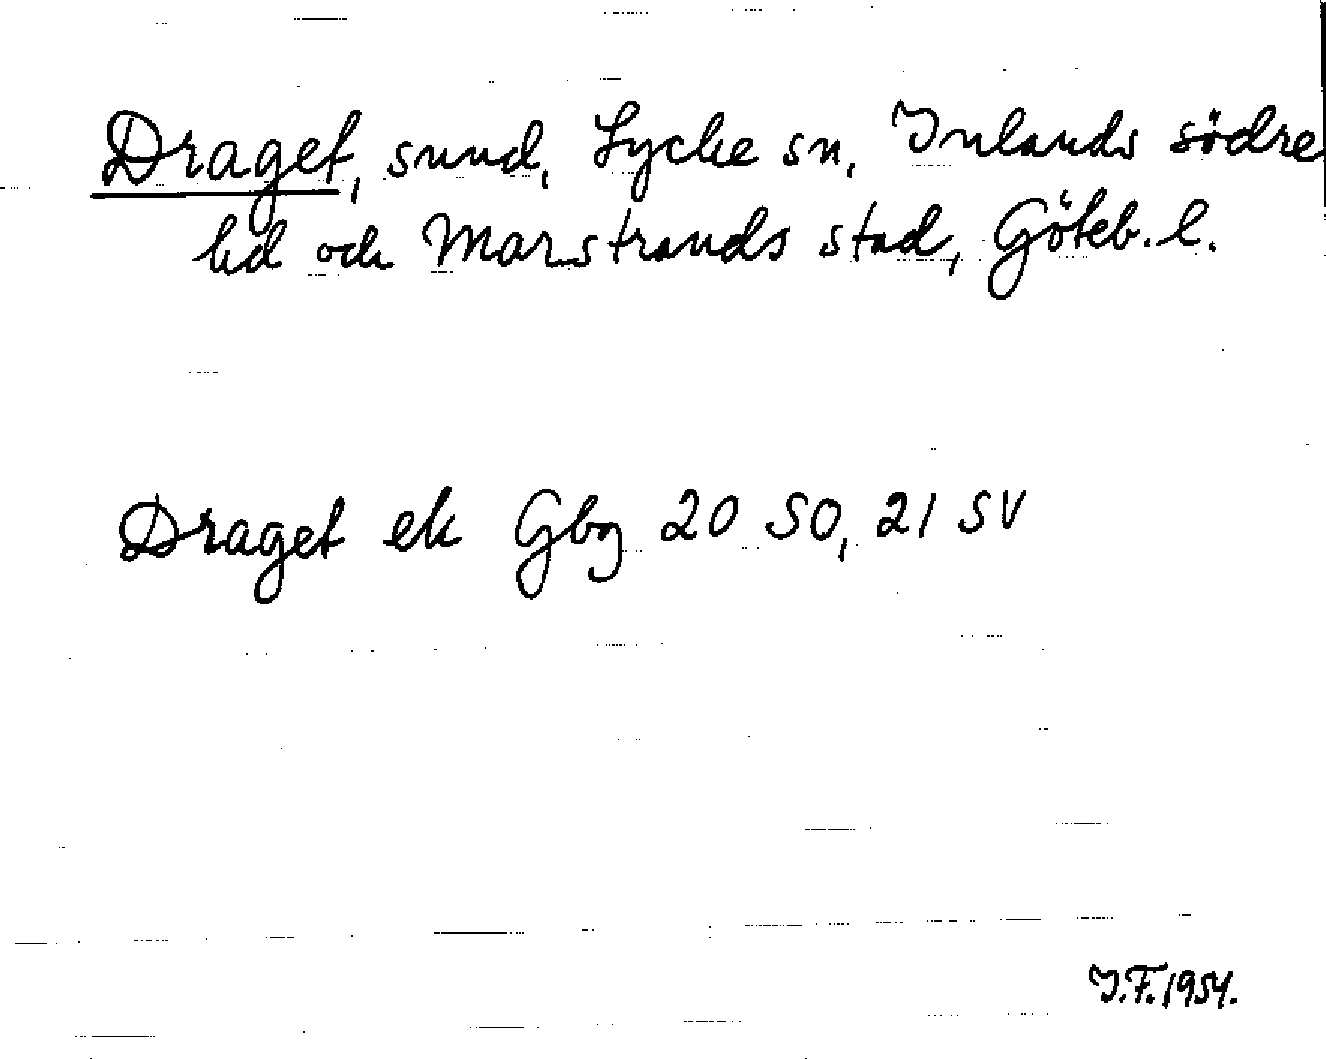 Draget, sund, Lycke sn, Inlands södre
hd och Marstrands stad, Göteb. l.
Draget ek Gbg 20 SO, 21 SV
I.F. 1954.